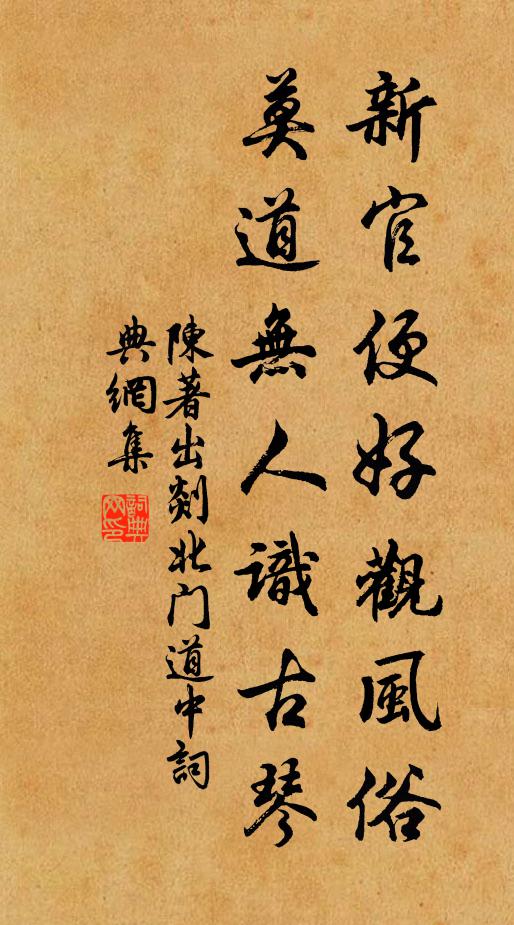 新官便好觀風俗
莫道無人識古琴
陳著出剡北门道中詞
典網集
詞典
网印